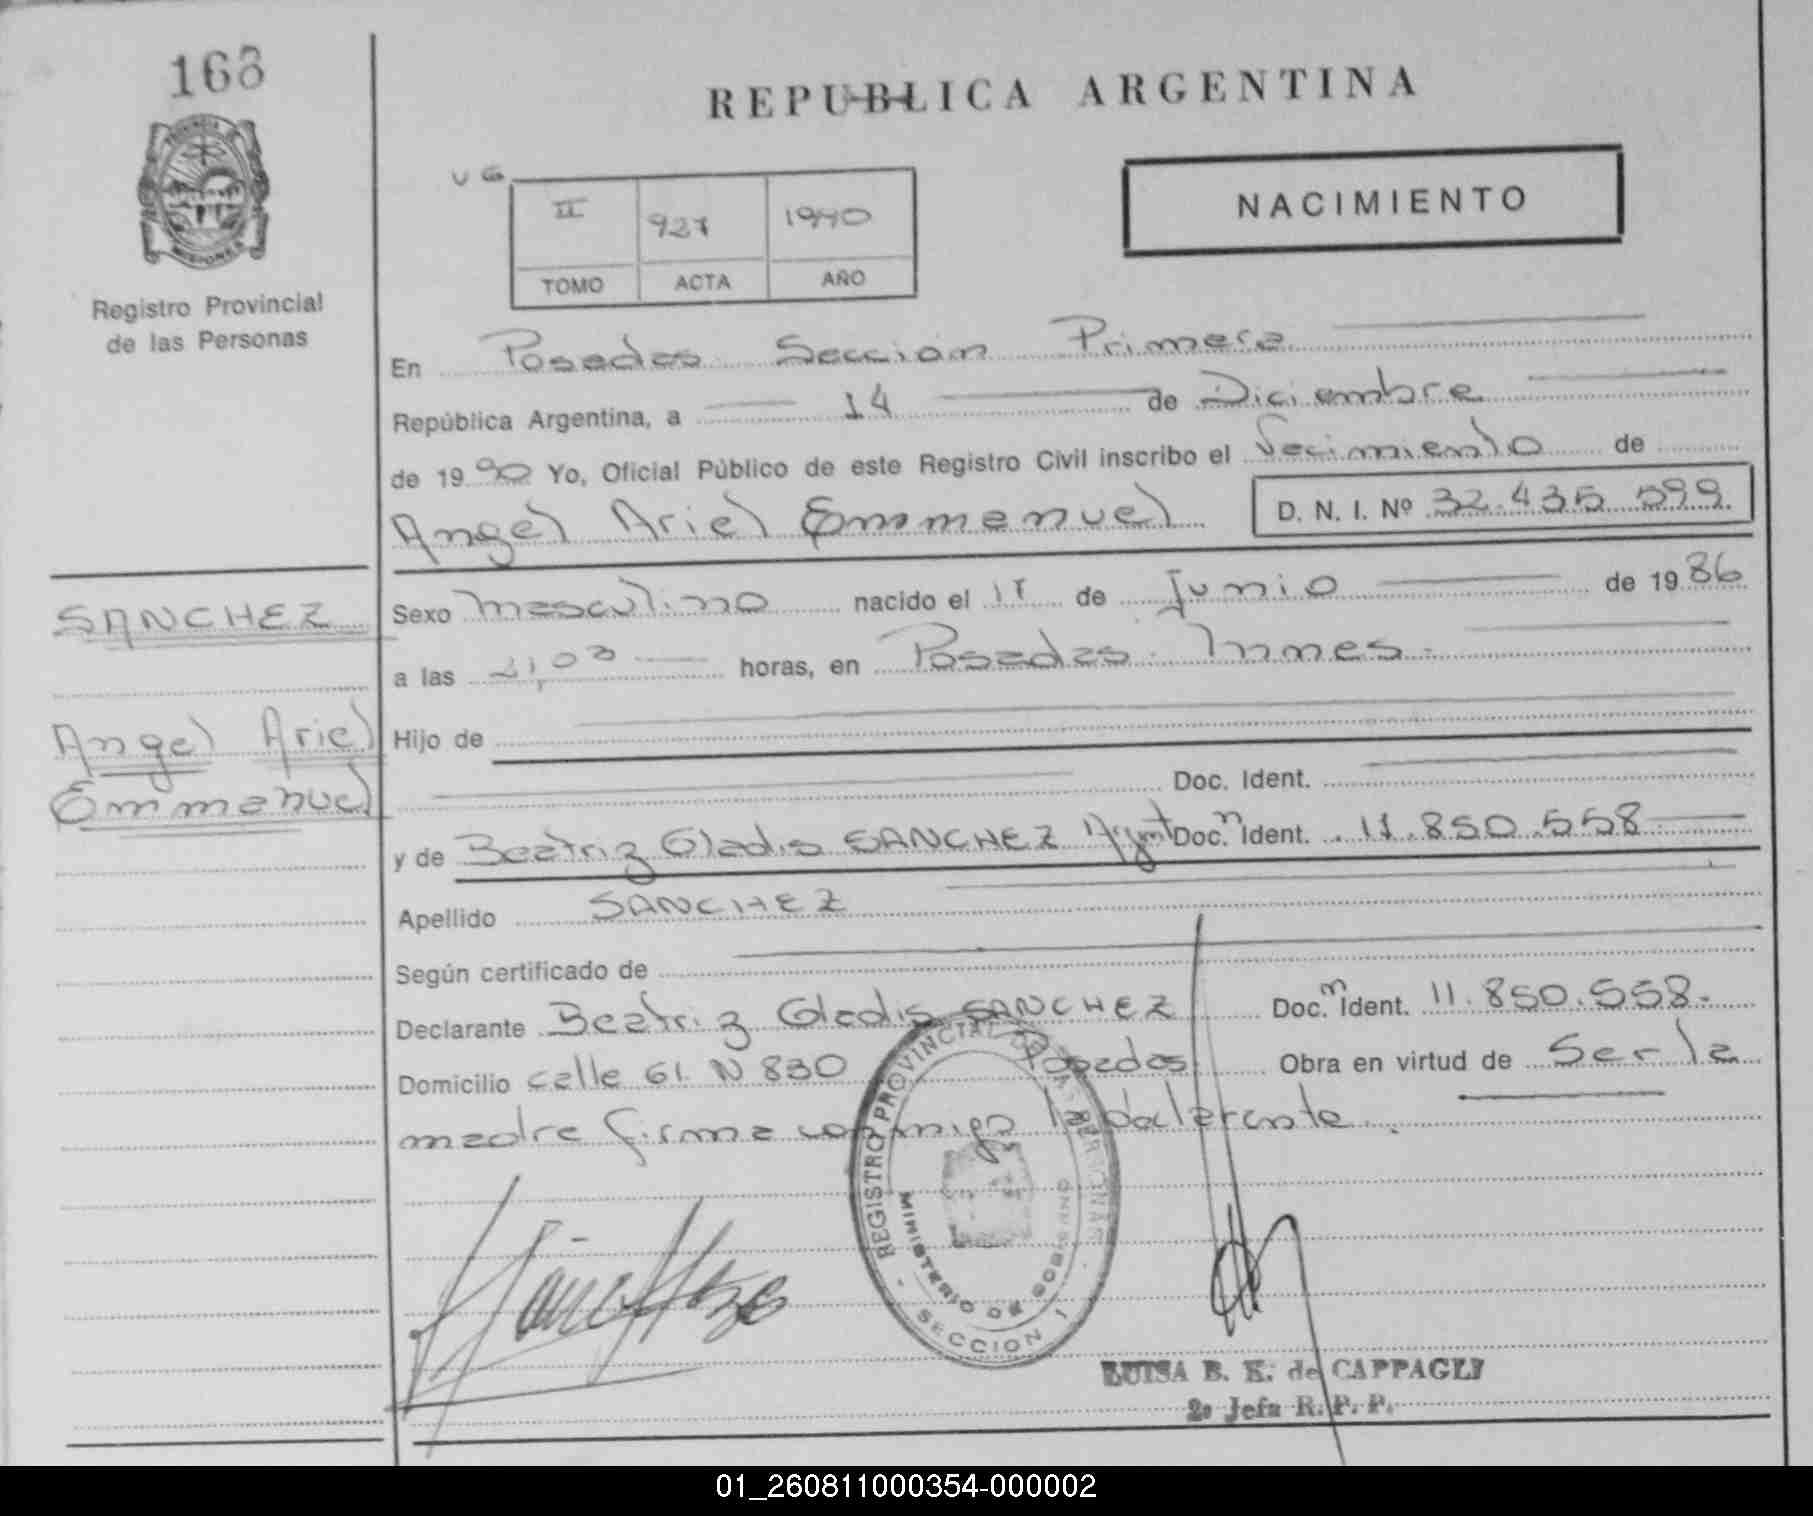 168
REPUBLICA ARGENTINA
PROVINCIA
MISIONES
Registro Provincial
de las Personas
II 927 1990
TOMO ACTA AÑO
NACIMIENTO
En Posadas Sección Primera
República Argentina, a 14 de Diciembre
de 1990 Yo, Oficial Público de este Registro Civil inscribo el Nacimiento de
Angel Ariel Emmanuel D. N. I. Nº 32.435.599
SANCHEZ
Angel Ariel
Emmanuel
Sexo masculino nacido el 11 de Junio de 1986
a las 21,00 horas, en Posadas. Mnes.
Hijo de
Doc. Ident.
y de Beatriz Gladis SANCHEZ Argent Doc. Ident. 11.850.558
Apellido SANCHEZ
Según certificado de
Declarante Beatriz Gladis SANCHEZ Doc. Ident. 11.850.558.
Domicilio calle 61. N 830 Posadas Obra en virtud de Ser la
madre firma conmigo la declarante.
REGISTRO PROVINCIAL DE LAS PERSONAS
MINISTERIO DE GOBIERNO
SECCION 1
LUISA B. K. de CAPPAGLI
2º Jefa R. P. P.
01_260811000354-000002